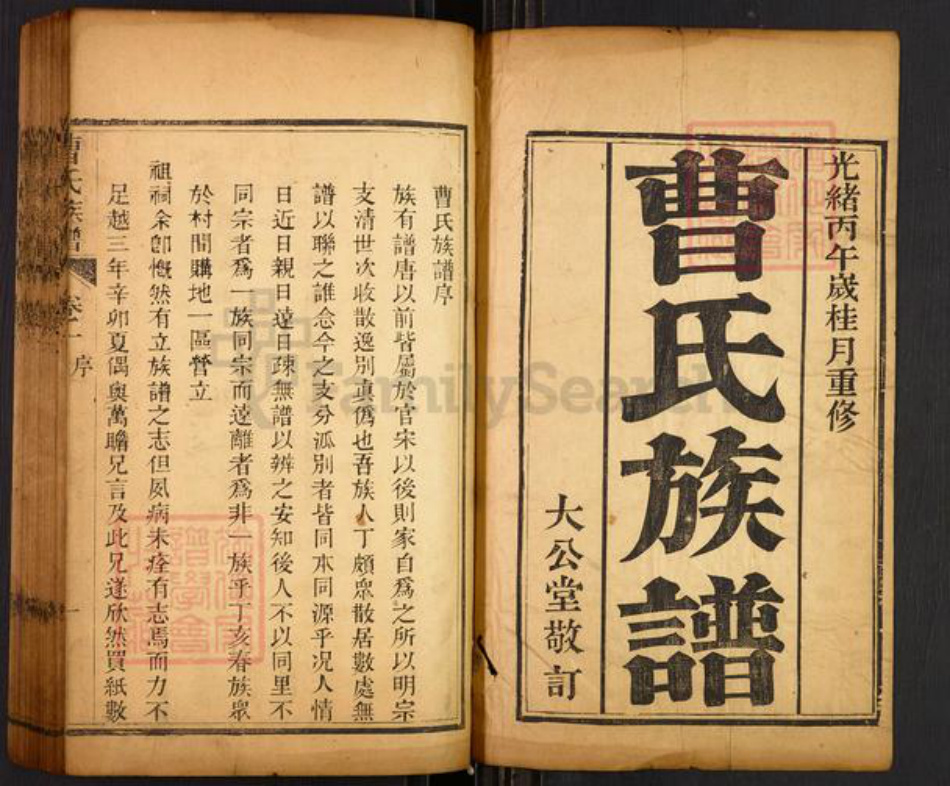 光緒丙午歲桂月重修
曹氏族譜
大公堂敬訂
曹氏族譜序
族有譜唐以前皆屬於官宋以後則家自爲之所以明宗
支清世次收散逸別真僞也吾族人丁頗眾散居數處無
譜以聯之誰念今之支分派別者皆同本同源乎况人情
日近日親日遠日疎無譜以辨之安知後人不以同里不
同宗者爲一族同宗而遠離者爲非一族乎丁亥春族眾
於村間購地一區營立
祖祠余卽慨然有立族譜之志但夙病未痊有志焉而力不
足越三年辛卯夏偶與萬瞻兄言及此兄遂欣然買紙數
曹氏族譜
卷一
序
一
FamilySearch